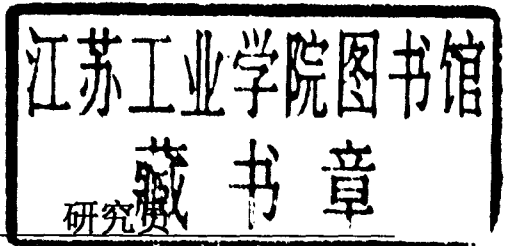 江苏工业学院图书馆
藏书章
研究员